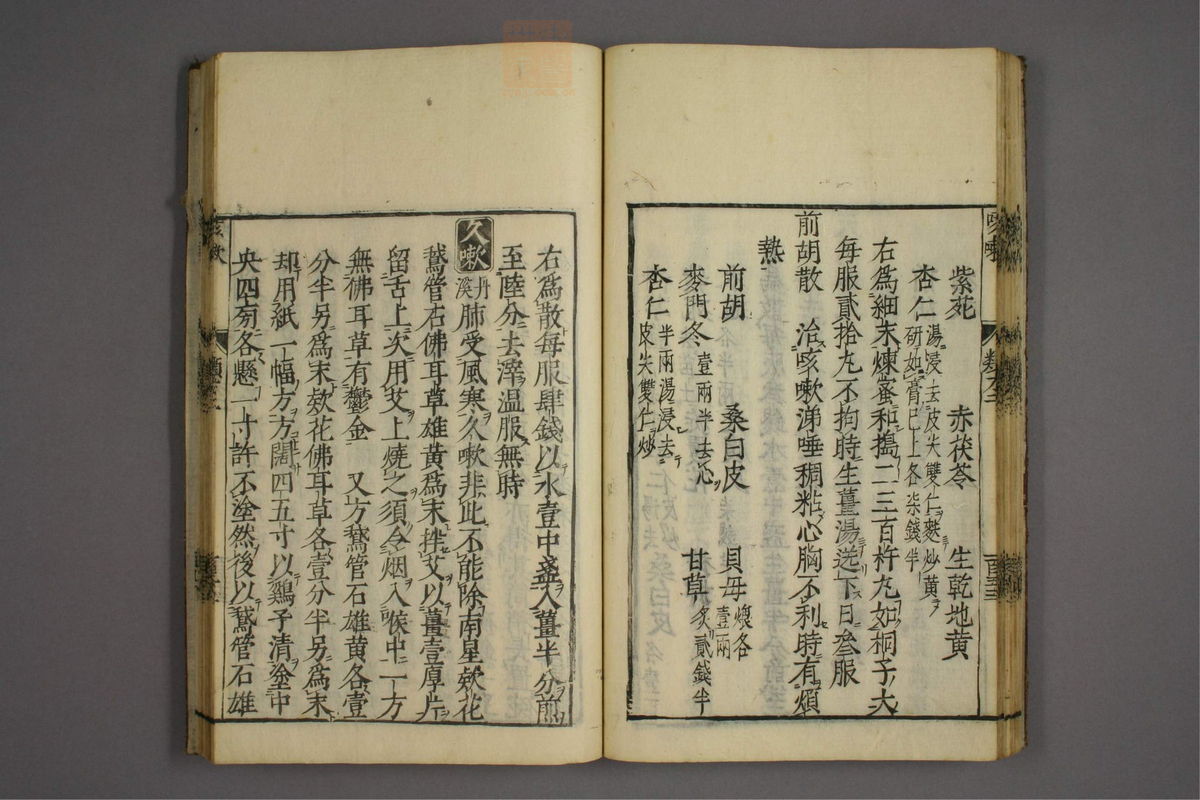 紫菀　赤茯苓　生乾地黄
杏仁湯浸去皮尖雙仁麩炒黄
研如膏已上各柒錢半
右爲細末煉蜜和搗二三百杵丸如桐子大
每服貳拾丸不拘時生薑湯送下日叄服
前胡散　治咳嗽涕唾稠粘心胸不利時有煩
熱
前胡　桑白皮　貝母煨各
壹兩
麥門冬壹兩半去心　甘草炙貳錢半
杏仁半兩湯浸去
皮尖雙仁炒
右爲散每服肆錢以水壹中盞入薑半分煎
至陸分去滓温服無時
久嗽　丹
溪　肺受風寒久嗽非此不能除南星欵花
鵞管石佛耳草雄黄爲末拌艾以薑壹厚片
留舌上次用艾上燒之須令烟入喉中一方
無佛耳草有鬱金　又方鵞管石雄黄各壹
分半另爲末欵花佛耳草各壹分半另爲末
却用紙一幅方方闊四五寸以鷄子清塗中
央四旁各懸一寸許不塗然後以鵞管石雄
咳嗽
類